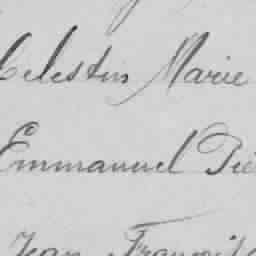 Celestin Marie
Emmanuel Pie
Jean François